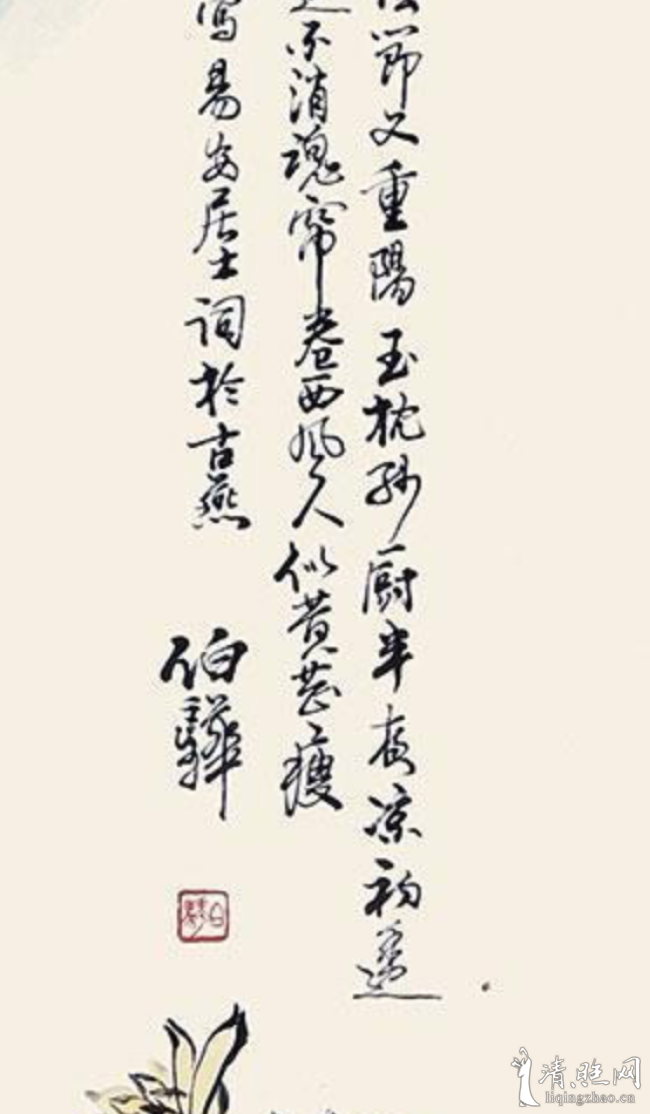 佳節又重陽玉枕紗厨半夜凉初透
道不消魂帘卷西风人似黄花瘦
寫易安居士詞於古燕
伯驊
清照网
liqingzhao.cn